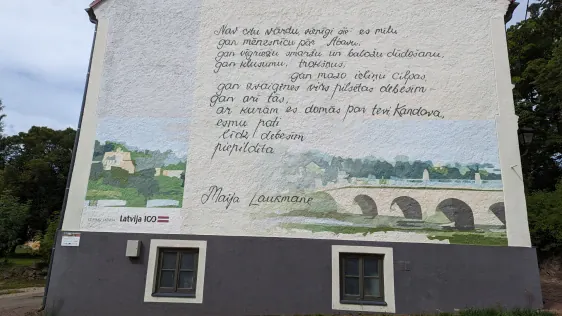 Nav citu vārdu, vienīgi šis es mīlu
gan mēnesnīcu pār Abavu,
gan viģriežu smaržu un baložu dūdošanu,
gan klusumu, trokšņus,
gan mazo ieliņu cilpas,
gan zvaigznes virs pilsētas debesīm –
gan arī tās,
ar kurām es domās par tevi Kandava,
esmu pati
līdz debesīm
piepildīta
Maija Laukmane
Latvija 100